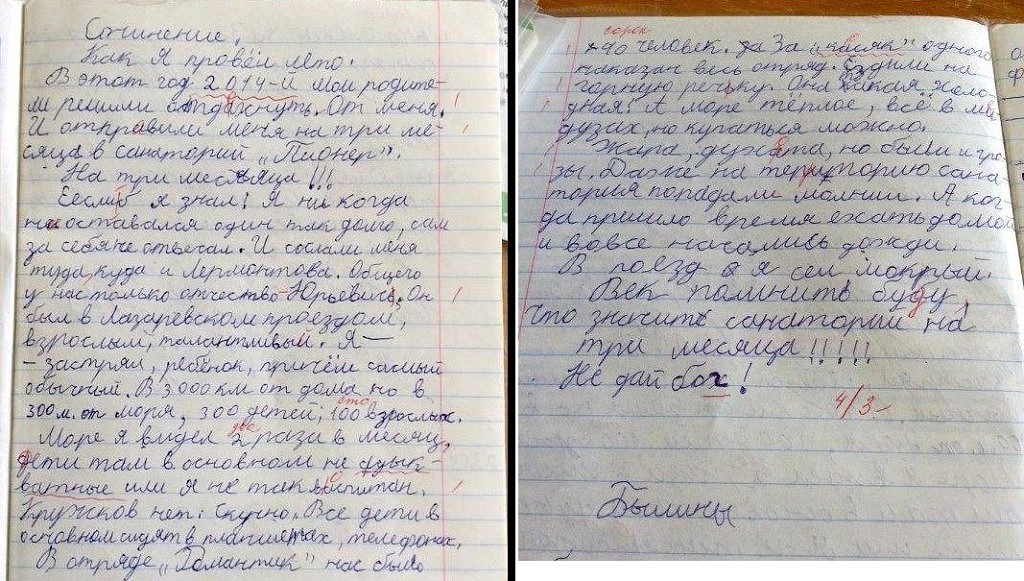 Сочинение.
Как я провёл лето.
В этот год 2014-й мои родите-
ли решили отдахнуть. От меня.
И отправили меня на три ме-
сяца в санаторий „Пионер".
На три месяца!!!
Если б я знал! Я ни когда
не оставался один так долго, сам
за себя не отвечал. И сослали меня
туда, куда и Лермонтова. Общего
у нас только отчество – Юрьевич. Он
был в Лазаревском проездом,
взрослый, талантливый. Я –
– застрял, ребёнок, причём самый
обычный. В 3000 км от дома но в
сто
300 м. от моря, 300 детей, 100 взрослых.
две
Море я видел 2 раза в месяц,
дети там в основном не адык-
ватные или я не так воспитан.
Кружков нет. Скучно. Все дети в
основном сидят в планшетах, телефонах.
В отряде „Романтик" нас было
сорок
40 человек. За „касяк" одного
наказан весь отряд. Ездили на
горную речьку. Она такая, холо-
дная! А море тёплое, всё в ме
дузах, но купаться можно.
Жара, духата, но были и гро-
зы. Даже на территорию сана-
тория попадали молнии. А ког-
да пришло время ехать домой
и вовсе начались дожди.
В поезд я сел мокрый.
Век помнить буду,
Что значить санаторий на
три месяца!!!!!
Не дай бох!
4/3-
Былины